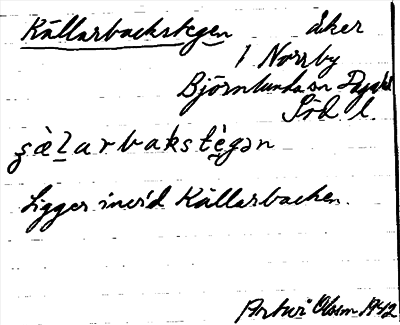 Källarbackstegen åker
i Norrby
Björnlunda sn Daga hd
Söd. l.
ʂὲl̲arbakstè̲gən
Ligger invid Källarbacken.
Artur Olsson 1942